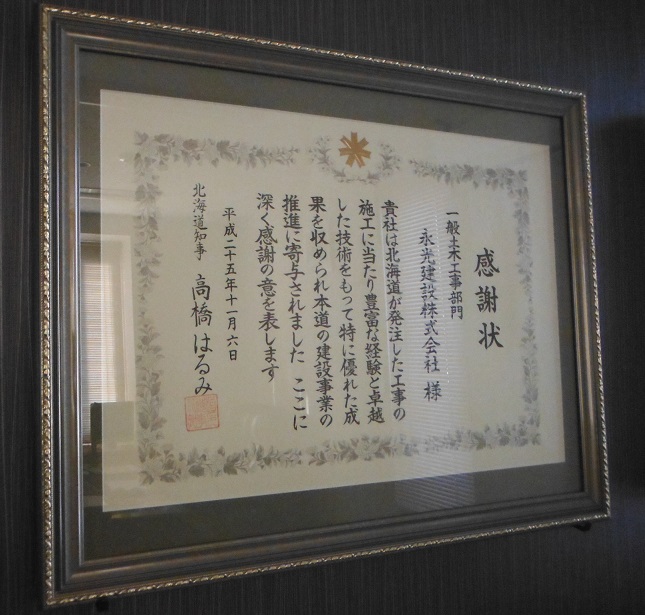 感謝状
一般土木工事部門
永光建設株式会社 様
貴社は北海道が発注した工事の
施工に当たり豊富な経験と卓越
した技術をもって特に優れた成
果を収められ本道の建設事業の
推進に寄与されました ここに
深く感謝の意を表します
平成二十五年十一月六日
北海道知事 高橋はるみ